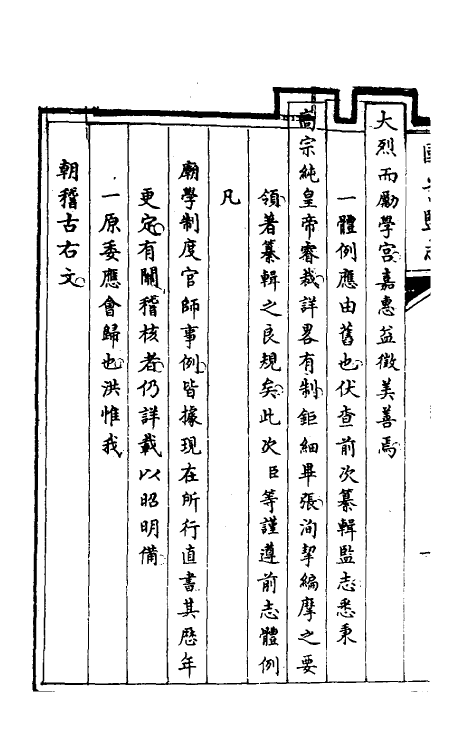 大烈而勵學宮嘉惠益徵美善焉
一體例應由舊也伏查前次纂輯監志悉秉
高宗純皇帝睿裁詳畧有制鉅細畢張洵挈編摩之要
領著纂輯之良規矣此次臣等謹遵前志體例
凡
廟學制度官師事例皆據現在所行直書其歷年
更定有關稽核者仍詳載以昭明備
一原委應會歸也洪惟我
朝稽古右文